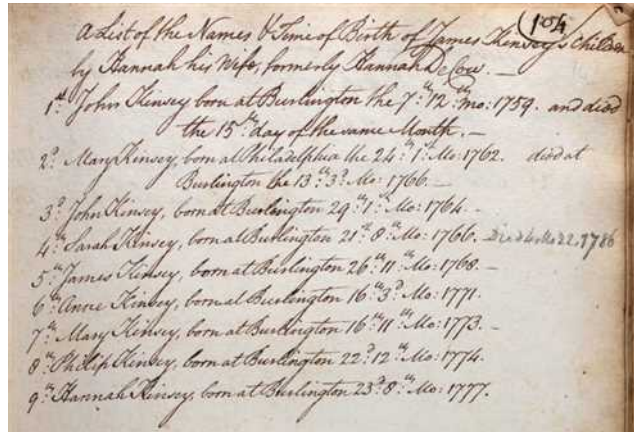 104
A List of the Names & Time of Birth of James Kinsey's Children
by Hannah his Wife, formerly Hannah De Cow. —
1st. John Kinsey born at Burlington the 7th. 12th. mo: 1759. and died
the 15th. day of the same Month. —
2d. Mary Kinsey, born at Philadelphia the 24th. 1st. Mo: 1762. died at
Burlington the 13th. 3d. Mo: 1766. —
3d. John Kinsey, born at Burlington 29th. 1st. Mo: 1764. —
4th. Sarah Kinsey, born at Burlington 21st. 8th. Mo: 1766. Died 4 Mo 22, 1786
5th. James Kinsey, born at Burlington 26th. 11th. Mo: 1768. —
6th. Anne Kinsey, born at Burlington 16th. 3d. Mo: 1771.
7th. Mary Kinsey, born at Burlington 16th. 11th. Mo: 1773. —
8th. Philip Kinsey, born at Burlington 22d. 12th. Mo: 1774.
9th. Hannah Kinsey, born at Burlington 23d. 8th. Mo: 1777.